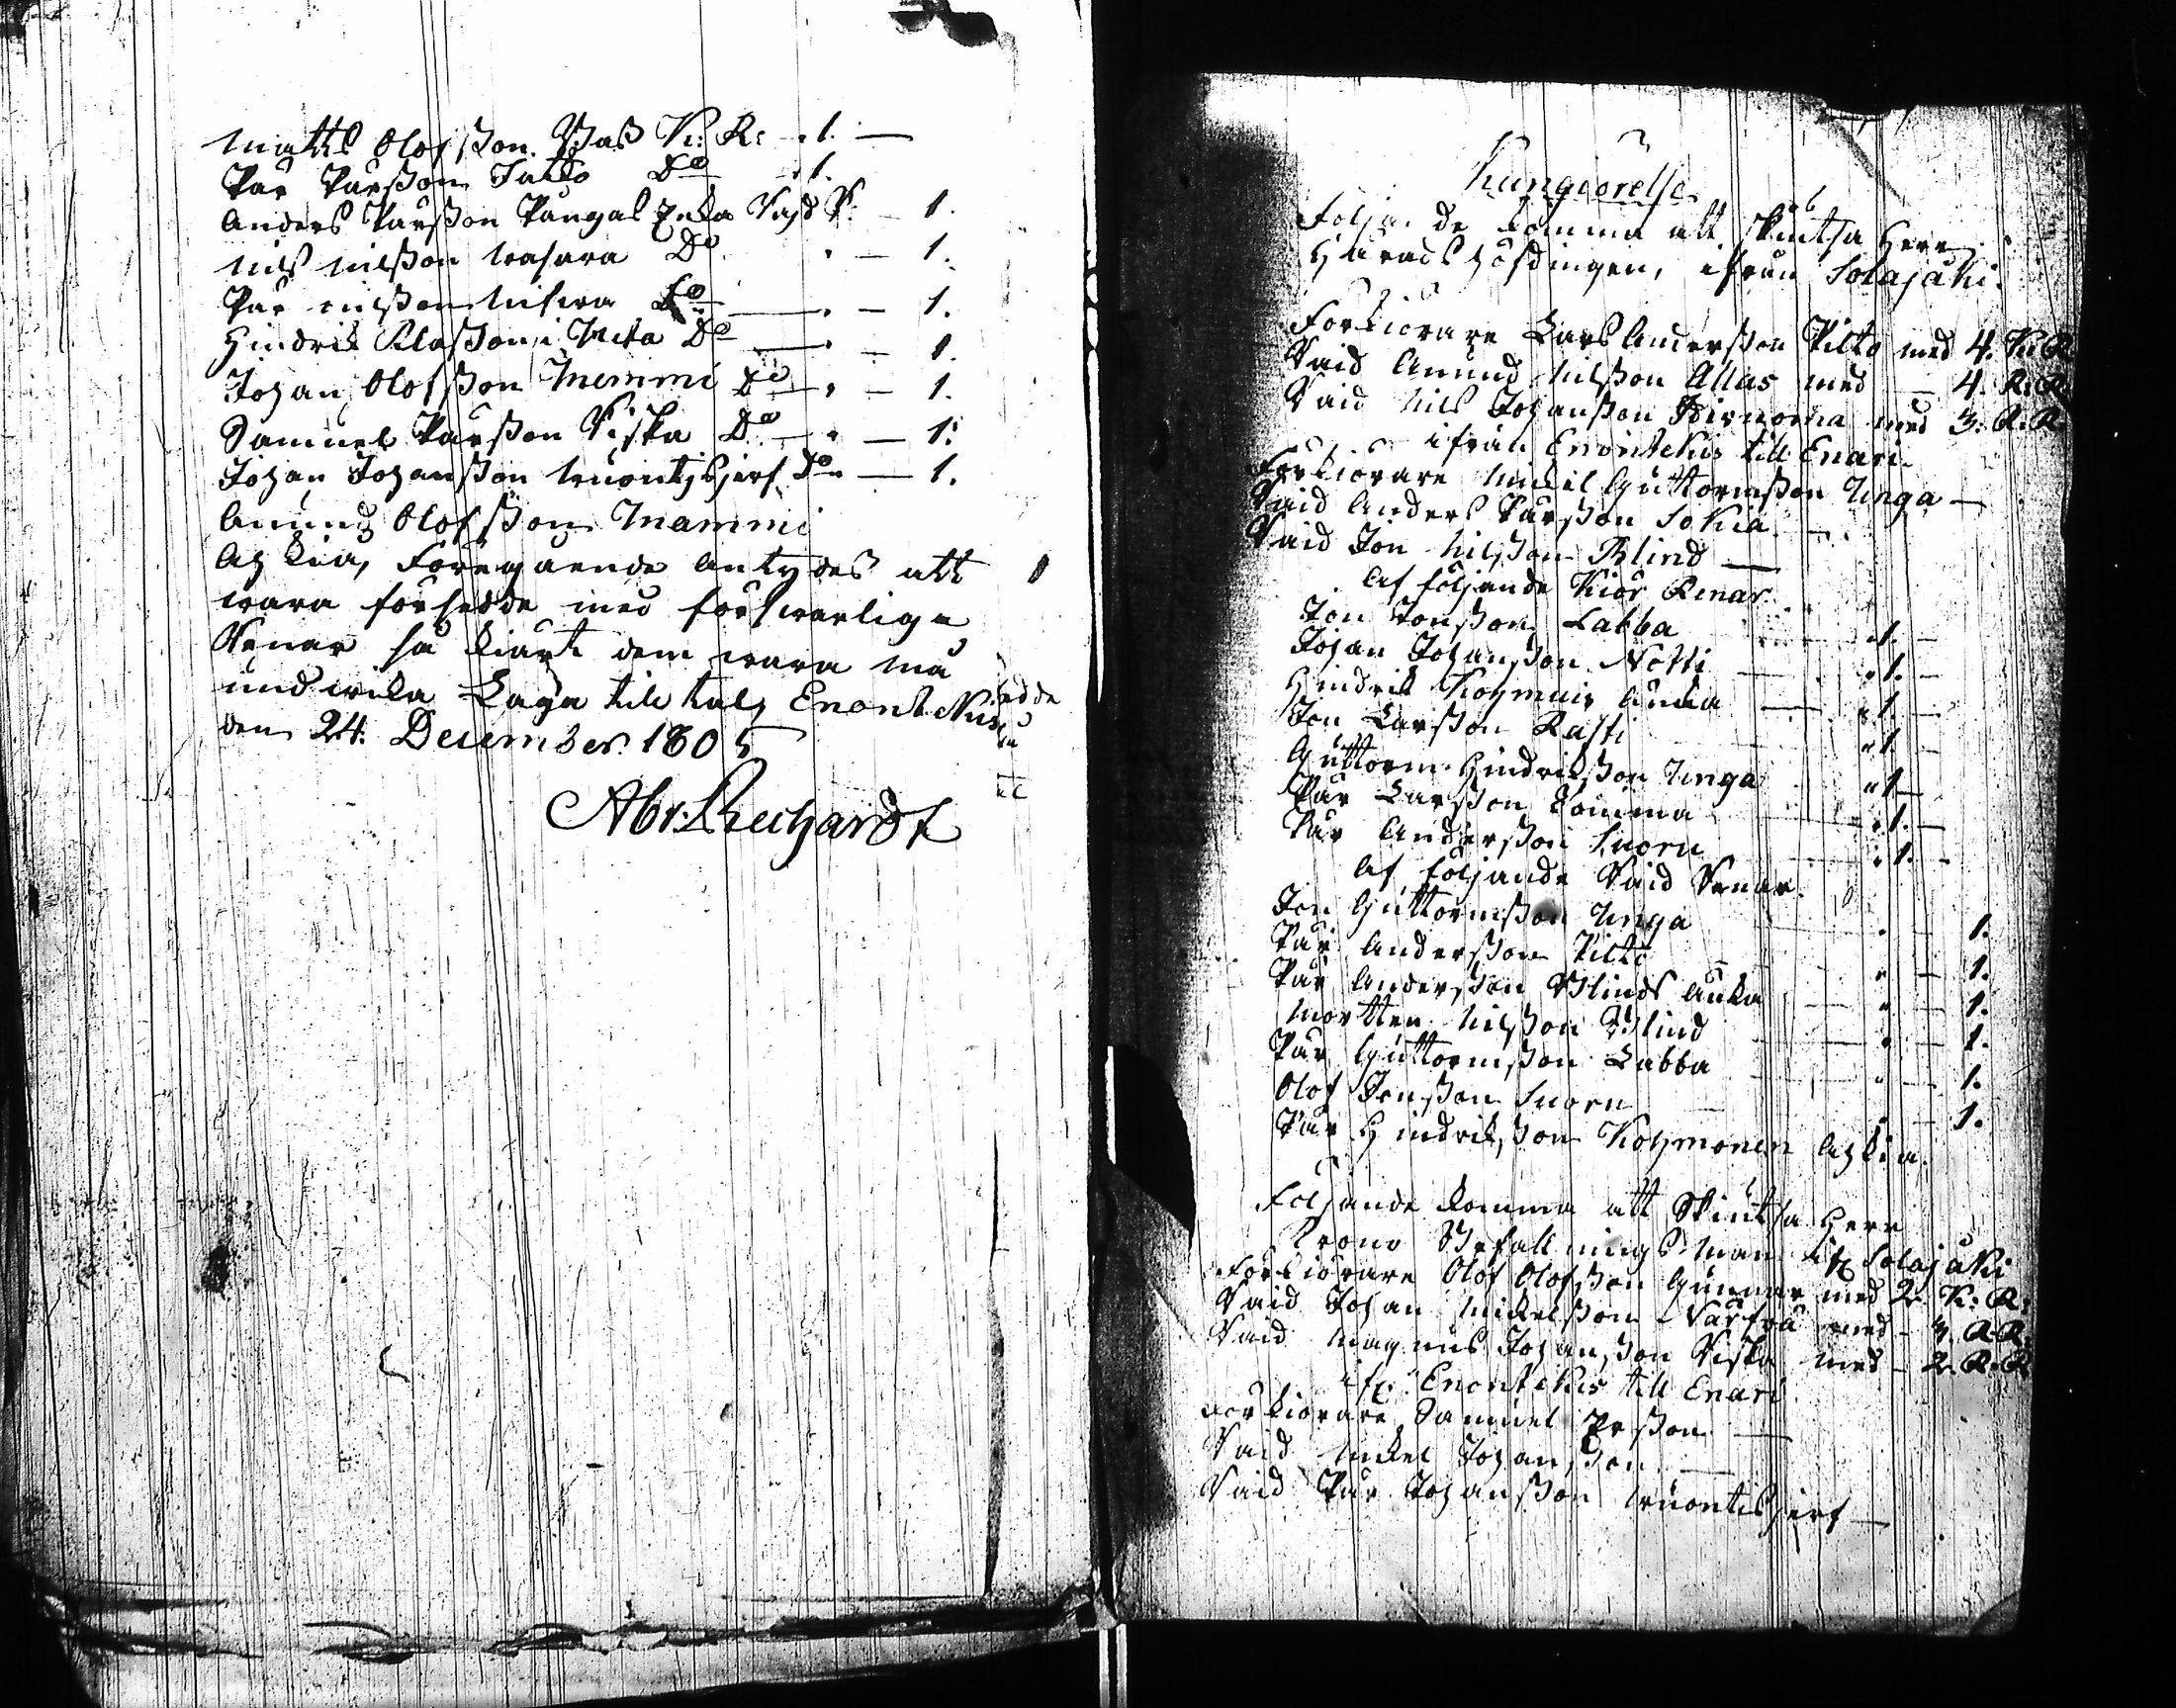 Matts Olofsson Vasß K: R: - 1. —
Pär Pärsson Jatko Do - 1.
Anders Pärsson Pangals Enka Vajd R: — 1.
Nils Nilsson Wasara Do - — 1.
Pär Nilsson Do — - — 1.
Hindrik Klasson i Do — - — 1.
Johan Olofsson Memmi Do - — 1.
Samuel Pärsson Siska Do - — 1.
Johan Johansson Wuontisjerf Do — 1.
Amund Olofsson Mammi
Ahkia, Föregående antydes att
wara försedde med förswarliga
Renar så kiärt dem wara må
undwika Laga tiltal, Enontekis
den 24. December 1805
Abr: Reuhardt
Kungiörelse
Följande komma att skiutsa Herr
Häradshöfdingen, ifrån Solajäki.
Förkiörare Lars Andersson Pilto med 4. K: R.
Raid Amund Nilsson Allas med — 4. R: R.
Raid Nils Johansson med 3. R. R.
ifrån Enontekis till Enari
Förkiörare Mickel Guttormsson Unga —
Raid Anders Pärsson Sokia —
Raid Jon Nilsson Blind —
Af följande Kiör Renar
Jon Jonsson Labba — 1. —
Johan Johansson Notti — 1. —
Hindrik Kohmuis Änka — 1. —
Jon Larsson Rasti — 1. —
Guttorm Hindriksson Unga 1 —
Pär Larsson Komma 1. —
Pär Andersson Suoru 1. -
Af följande Raid Renar.
Jon Guttormsson Unga - 1.
Pär Andersson Pilto - — 1.
Pär Andersson Blinds Änka - — 1.
Mårtten Nilsson Blind - — 1.
Pär Guttormsson Labba - — 1.
Olof Jonsson Suoru - — 1.
Pär Hindriksson Kohmonen Ahkia.
Följande komma att Skiutsa Herr
Krono Befallningsman ifr Solajäki
Förkiörare Olof Olofsson Gunnar med 2. K: R:
Raid Johan Mickelsson Närfwä med - 3. R. R.
Raid Magnus Johansson Siska med - 2. R. R
ifr: Enontekis till Enari
Förkiörare Samuel Ersson —
Raid Mickel Johansson —
Raid Pär Johansson Wuontisjerf —